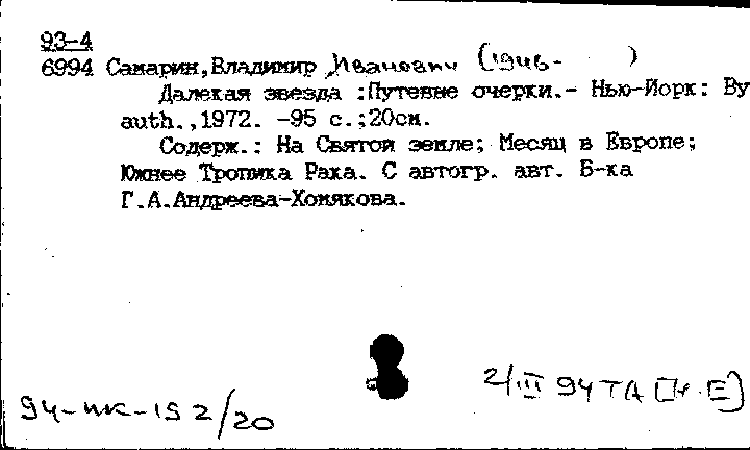 93-4
6994 Самарин,Владимир Иванович ( )
Далекая звезда :Путевые очерки.- Нью-Йорк: By
auth.,1972. -95 с.;20см.
Содерж.: На Святой земле; Месяц в Европе;
Южнее Тропика Рака. С автогр. авт. Б-ка
Г.А.Андреева-Хомякова.
2/III 94 ТА
94-ик-192/20